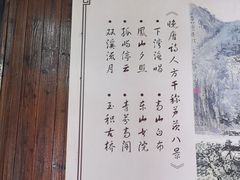 《晚唐诗人方干称芦茨八景》
• 下湾渔唱
• 凤山夕照
• 孤屿停云
• 双溪流月
• 高山白布
• 东山书院
• 青峯高阁
• 玉积古桥